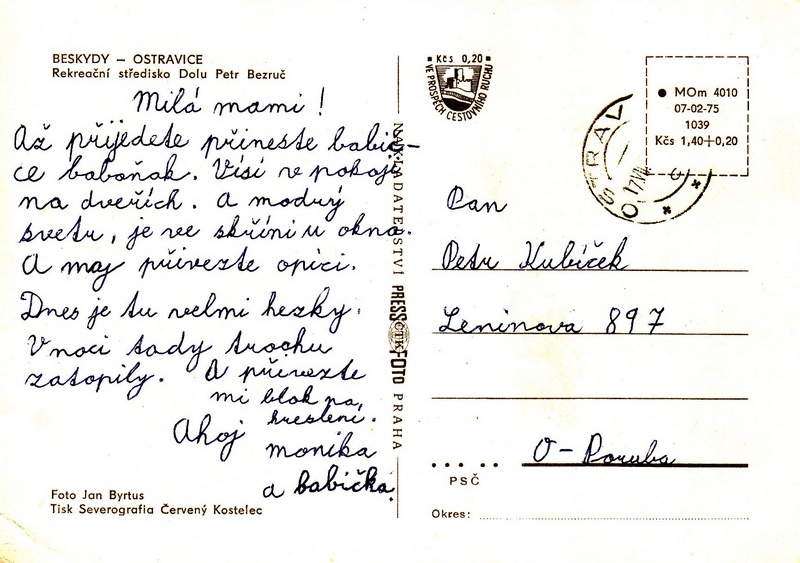 BESKYDY – OSTRAVICE
Rekreační středisko Dolu Petr Bezruč
Milá mami!
Až přijedete přineste babič-
ce baboňak. Visí v pokoji
na dveřích. A modrý
svetr, je ve skříni u okna.
A moj přivezte opici.
Dnes je tu velmi hezky.
V noci tady trochu
zatopily. A přivezte
mi blok na
kreslení.
Ahoj monika
a babička.
Foto Jan Byrtus
Tisk Severografia Červený Kostelec
NAKLADATELSTVÍ PRESSFOTO PRAHA
ČTK
Kčs 0,20
VE PROSPĚCH CESTOVNÍHO RUCHU
MOm 4010
07-02-75
1039
Kčs 1,40+0,20
Pan
Petr Kubíček
Leninova 897
O-Poruba
PSČ
Okres: